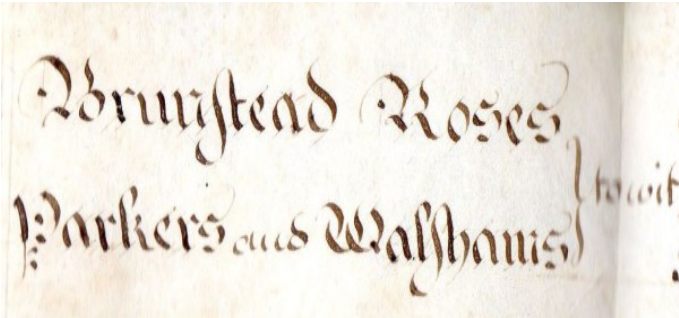 Brumstead Roses
Parkers and Walshams } to wit